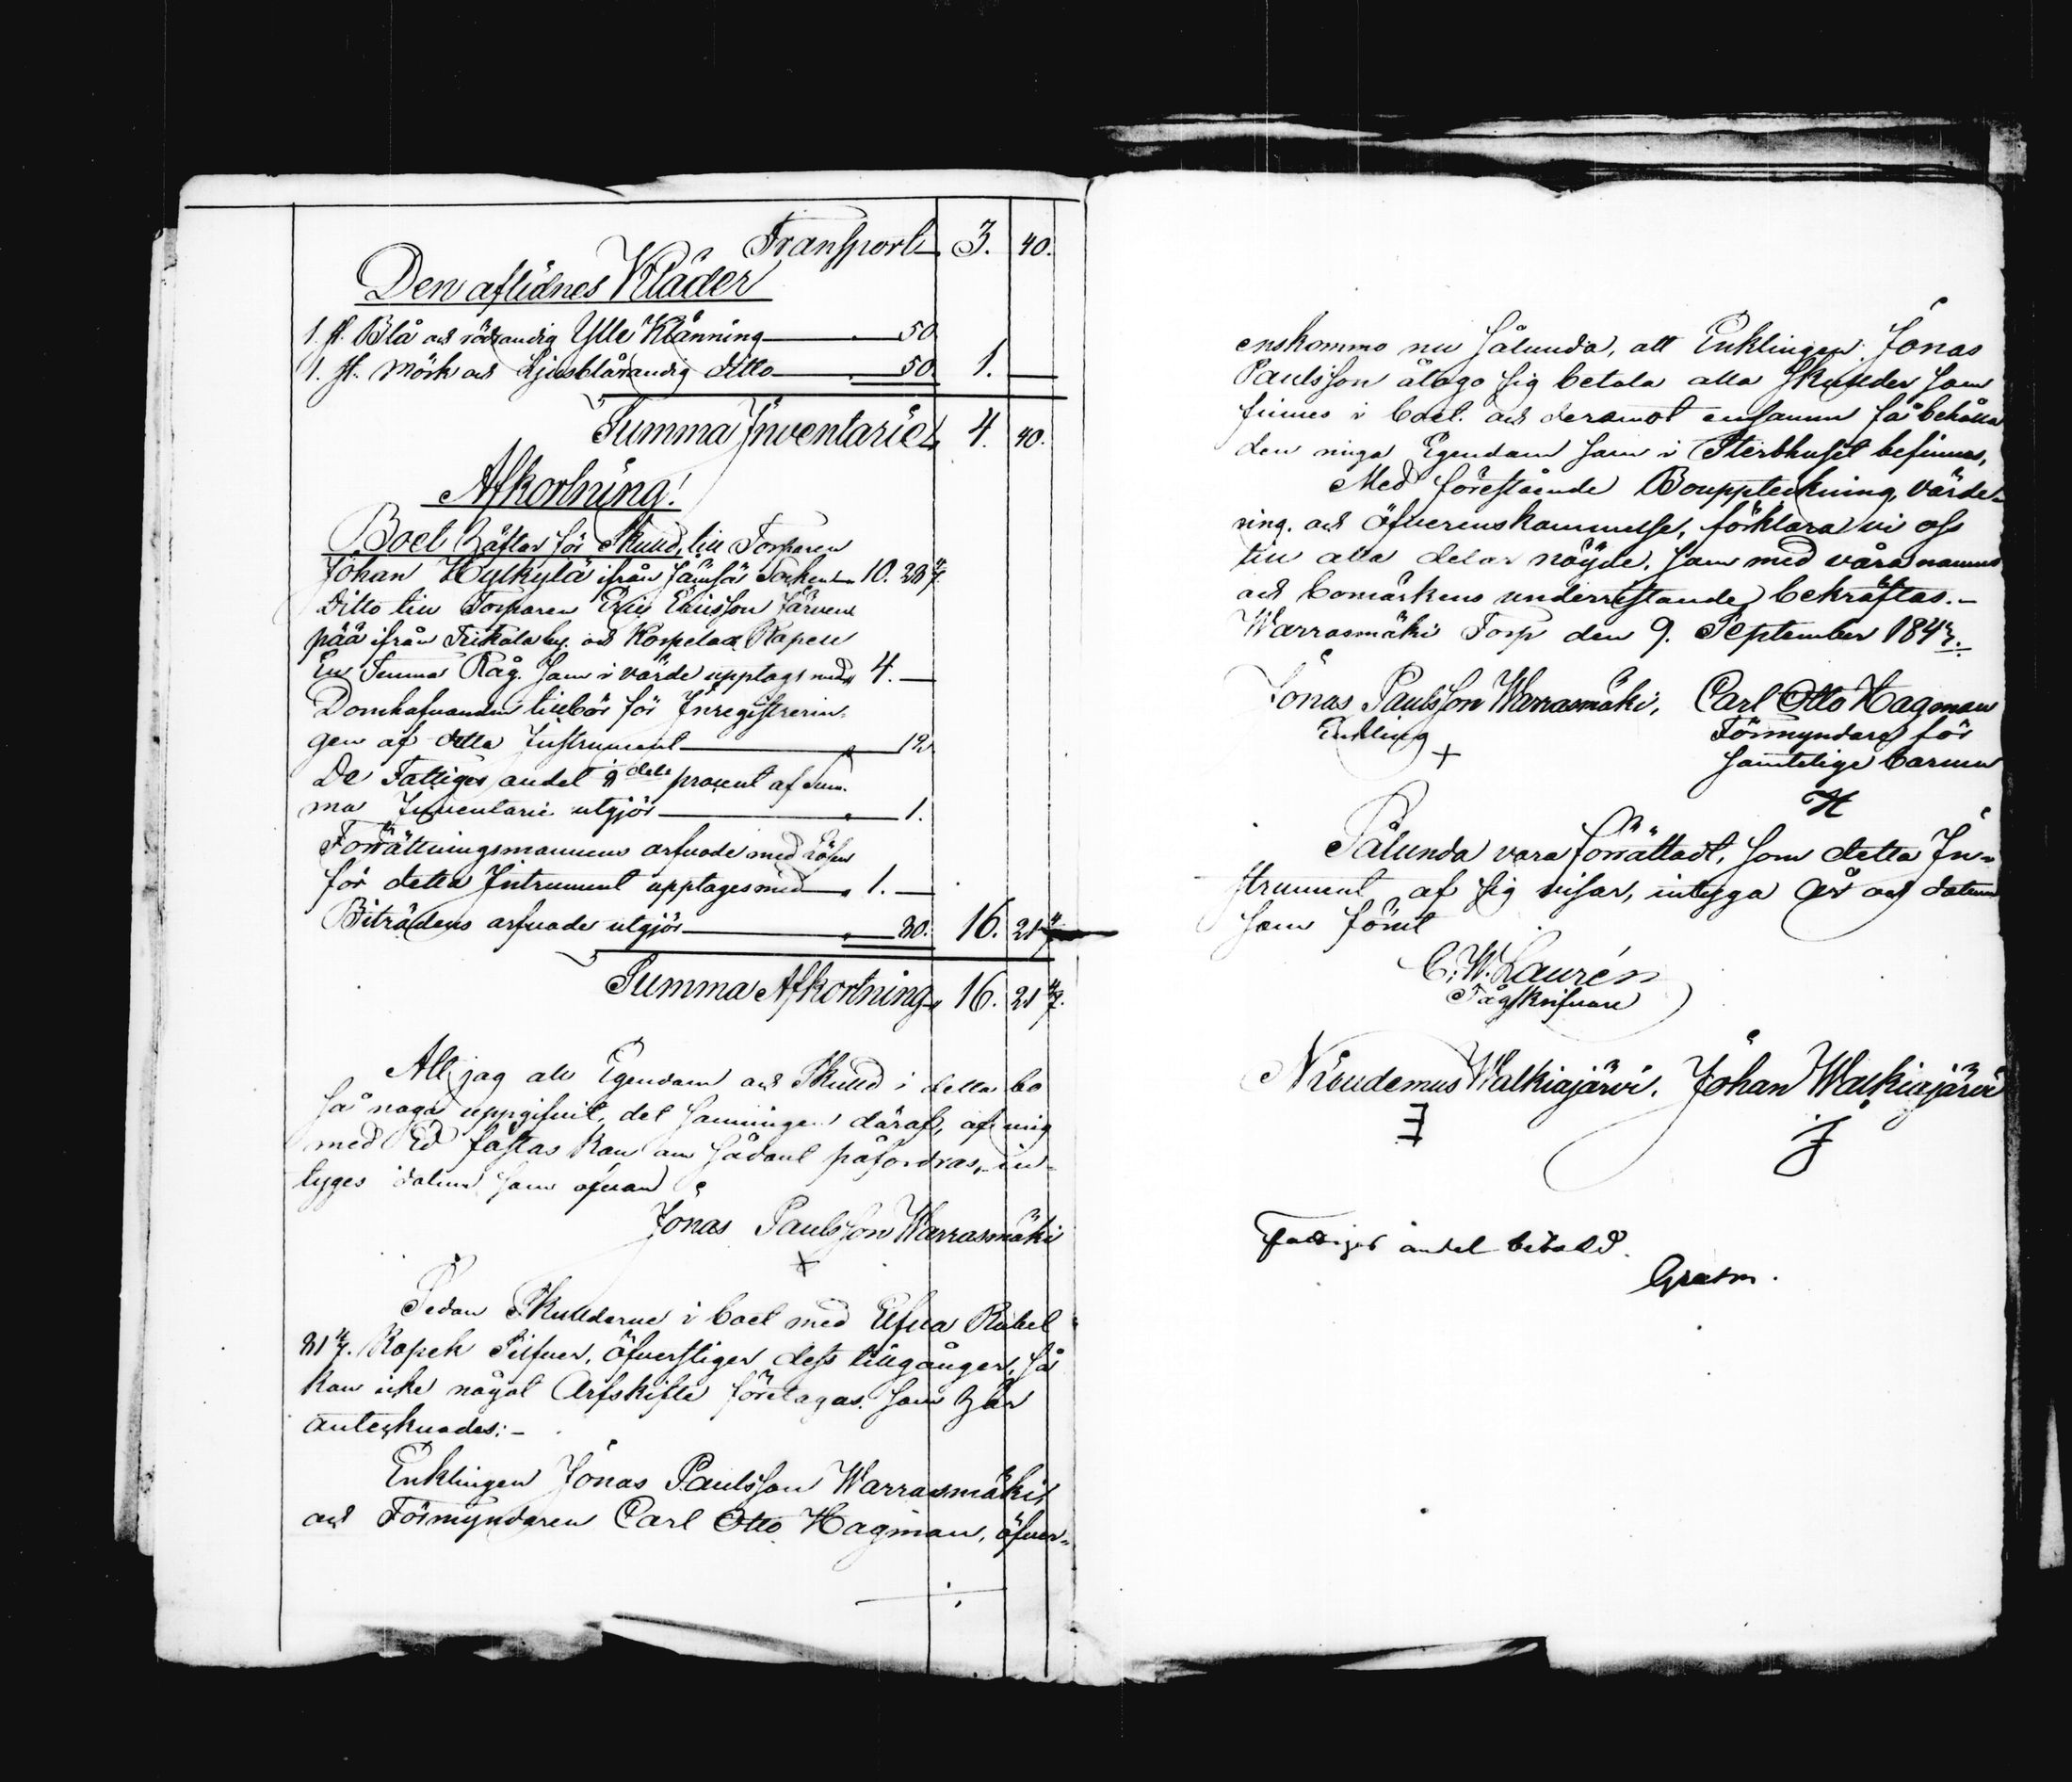 Transport 3. 40.
Den aflidnes Kläder
1. st. Blå och rödrandig Ylle Klänning 50
1. st. Mörk och Ljusblårandig ditto 50. 1. —
Summa Inventarie 4. 40.
Afkortning!
Boet häftar för Skuld, till Torparen
Johan Hylkylä ifrån Jämsä Socken 10. 28 4/7.
Ditto till Torparen Eric Ericsson Järven
pää ifrån Trikala by. och Korpelax Kapell
En Tunna Råg. som i värde upptags med 4. —
Domhafvanden tillkör för Inregistrerin-
gen af detta Instrument 12
De Fattigas andel 8 dels procent af Sum-
ma Inventarie utgjör 1.
Förrättningsmannens arfvode med Lösen
för detta Intrument upptages med 1. —
Biträdens arfvode utgjör 80. 16. 21 4/7
Summa Afkortning 16. 21 4/7.
Att jag all Egendom och Skuld i detta bo
så noga uppgifvit, det sanningen däraf, af mig
med Ed fästas kan om sådant påfordras, in-
tyges datum som ofvan
Jonas Paulsson Warrasmäki
+
Sedan Skulderne i boet med Elfva Rubel
81 4/7. Kopek Silfver, öfverstiger dess tillgångar, så
kan icke något Arfskifte företagas. som här
antecknades:-
Enklingen Jonas Paulsson Warrasmäki,
och Förmyndaren Carl Otto Hagman, öfver-
enskommo nu sålunda, att Enklingen Jonas
Paulsson åtogo sig betala alla skulder som
finnes i boet. och deremot ensamm få behålla
den ringa Egendom som i Sterbhuset befinnes,
Med förestående Bouppteckning, värde-
ring. och öfverenskommelse, förklara vi oss
till alla delar nöijde, som med våra namns
och bomärkens underrestande bekräftas.-
Warrasmäki Torp den 9. September 1843.
Jonas Paulsson Warrasmäki, Carl Otto Hagman
Enkling Förmyndare för
+ samtelige barnen
H
Sålunda vara förrättadt, som detta In-
strument af sig visar, intyga År och datum
som förut
C. W. Laurén
Tågskrifvare
Nicudemus Walkiajärvi. Johan Walkiajärvi
Fattiges andel betald.